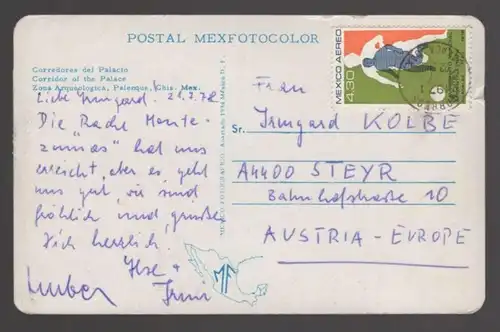 POSTAL MEXFOTOCOLOR
Corredores del Palacio
Corridor of the Palace
Zona Arqueologica, Palenque, Chis. Mex.
Liebe Irmgard. 21.7.78
Die "Rache Monte-
zumas" hat uns
erreicht, aber es geht
uns gut, wir sind
fröhlich und grüßen
Dich herzlich.
Ilse +
MEXICO AEREO
4.30
Frau
Sr. Irmgard KOLBE
A4400 STEYR
Bahnhofstraße 10
AUSTRIA - EUROPE
MF